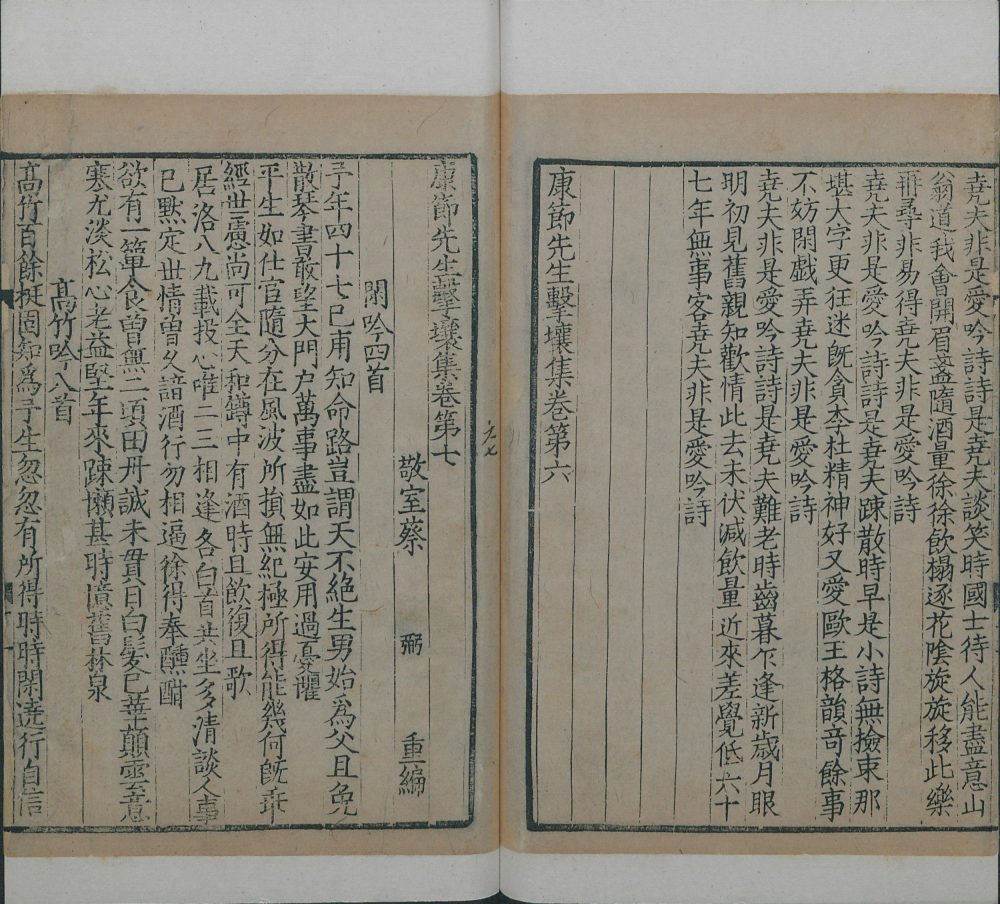 堯夫非是愛吟詩詩是堯夫談笑時國士待人能盡意山
翁道我會開眉盞隨酒量徐徐飲榻逐花陰旋旋移此樂
再尋非易得堯夫非是愛吟詩
堯夫非是愛吟詩詩是堯夫踈散時早是小詩無撿束那
堪大字更狂迷既貪李杜精神好又愛歐王格韻竒餘事
不妨閑戲弄堯夫非是愛吟詩
堯夫非是愛吟詩詩是堯夫難老時齒暮乍逢新歳月眼
明初見舊親知歡情此去未伏減飲量近來差覺低六十
七年無事客堯夫非是愛吟詩
康節先生擊壤集卷第六
康節先生擊壤集卷第七
敬室蔡 弼 重編
閑吟四首
予年四十七已甫知命路豈謂天不絶生男始為父且免
散琴書敢望大門户萬事盡如此安用過憂懼
平生如仕官隨分在風波所損無紀極所得能幾何旣乖
經世慮尚可全天和罇中有酒時且飲復且歌
居洛八九載投心唯二三相逢各白首共坐多清談人事
已黙定世情曽久諳酒行勿相逼徐得奉醺酣
欲有一簞食曽無二頃田丹誠未貫日白髮已華顛雲意
寒尤淡松心老益堅年來踈懶甚時憶舊林泉
髙竹吟八首
髙竹百餘梃固知為予生忽忽有所得時時閑遶行自信